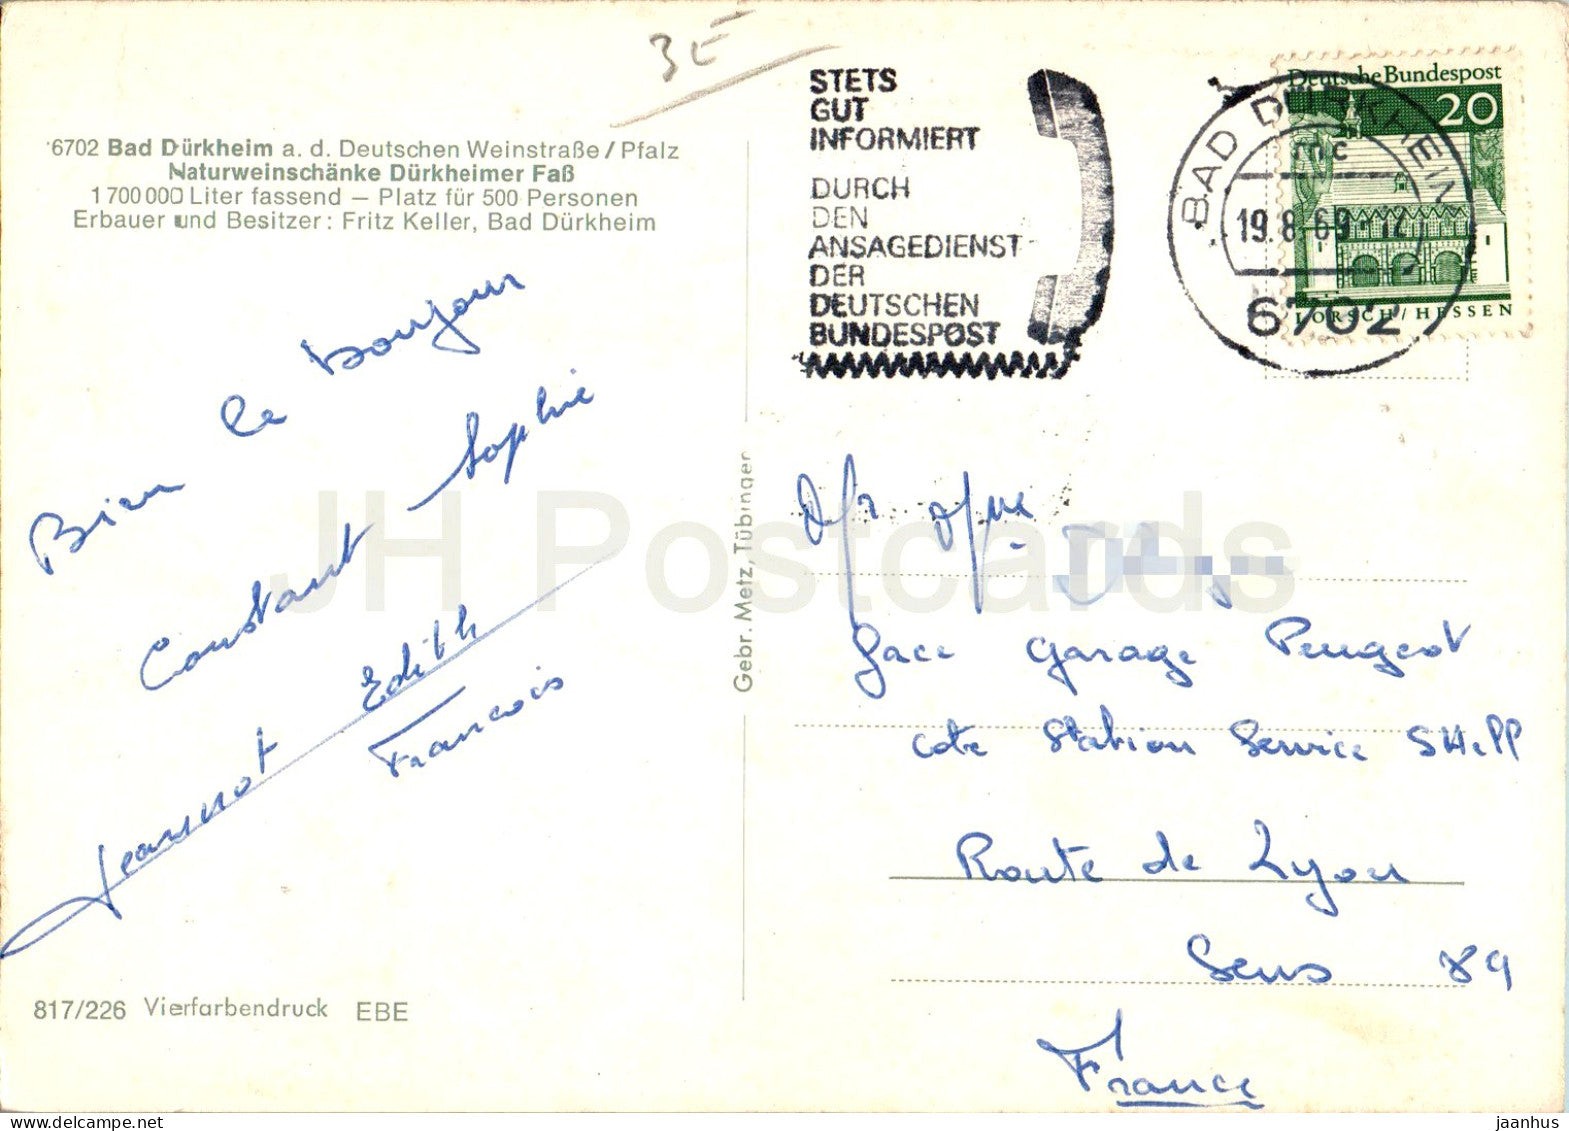 3E
6702 Bad Dürkheim a. d. Deutschen Weinstraße / Pfalz
Naturweinschänke Dürkheimer Faß
1 700 000 Liter fassend — Platz für 500 Personen
Erbauer und Besitzer: Fritz Keller, Bad Dürkheim
Bien le bonjour
Constant - Sophie
Jeannot Edith
Francois
817/226 Vierfarbendruck EBE
Gebr. Metz, Tübingen
STETS
GUT
INFORMIERT
DURCH
DEN
ANSAGEDIENST
DER
DEUTSCHEN
BUNDESPOST
BAD DÜRKHEIM
mc
19.8.69
6702
Deutsche Bundespost
20
LORSCH / HESSEN
face garage Peugeot
cote Station Service SHell
Route de Lyon
Sens 89
France
JH Postcards
jaanhus